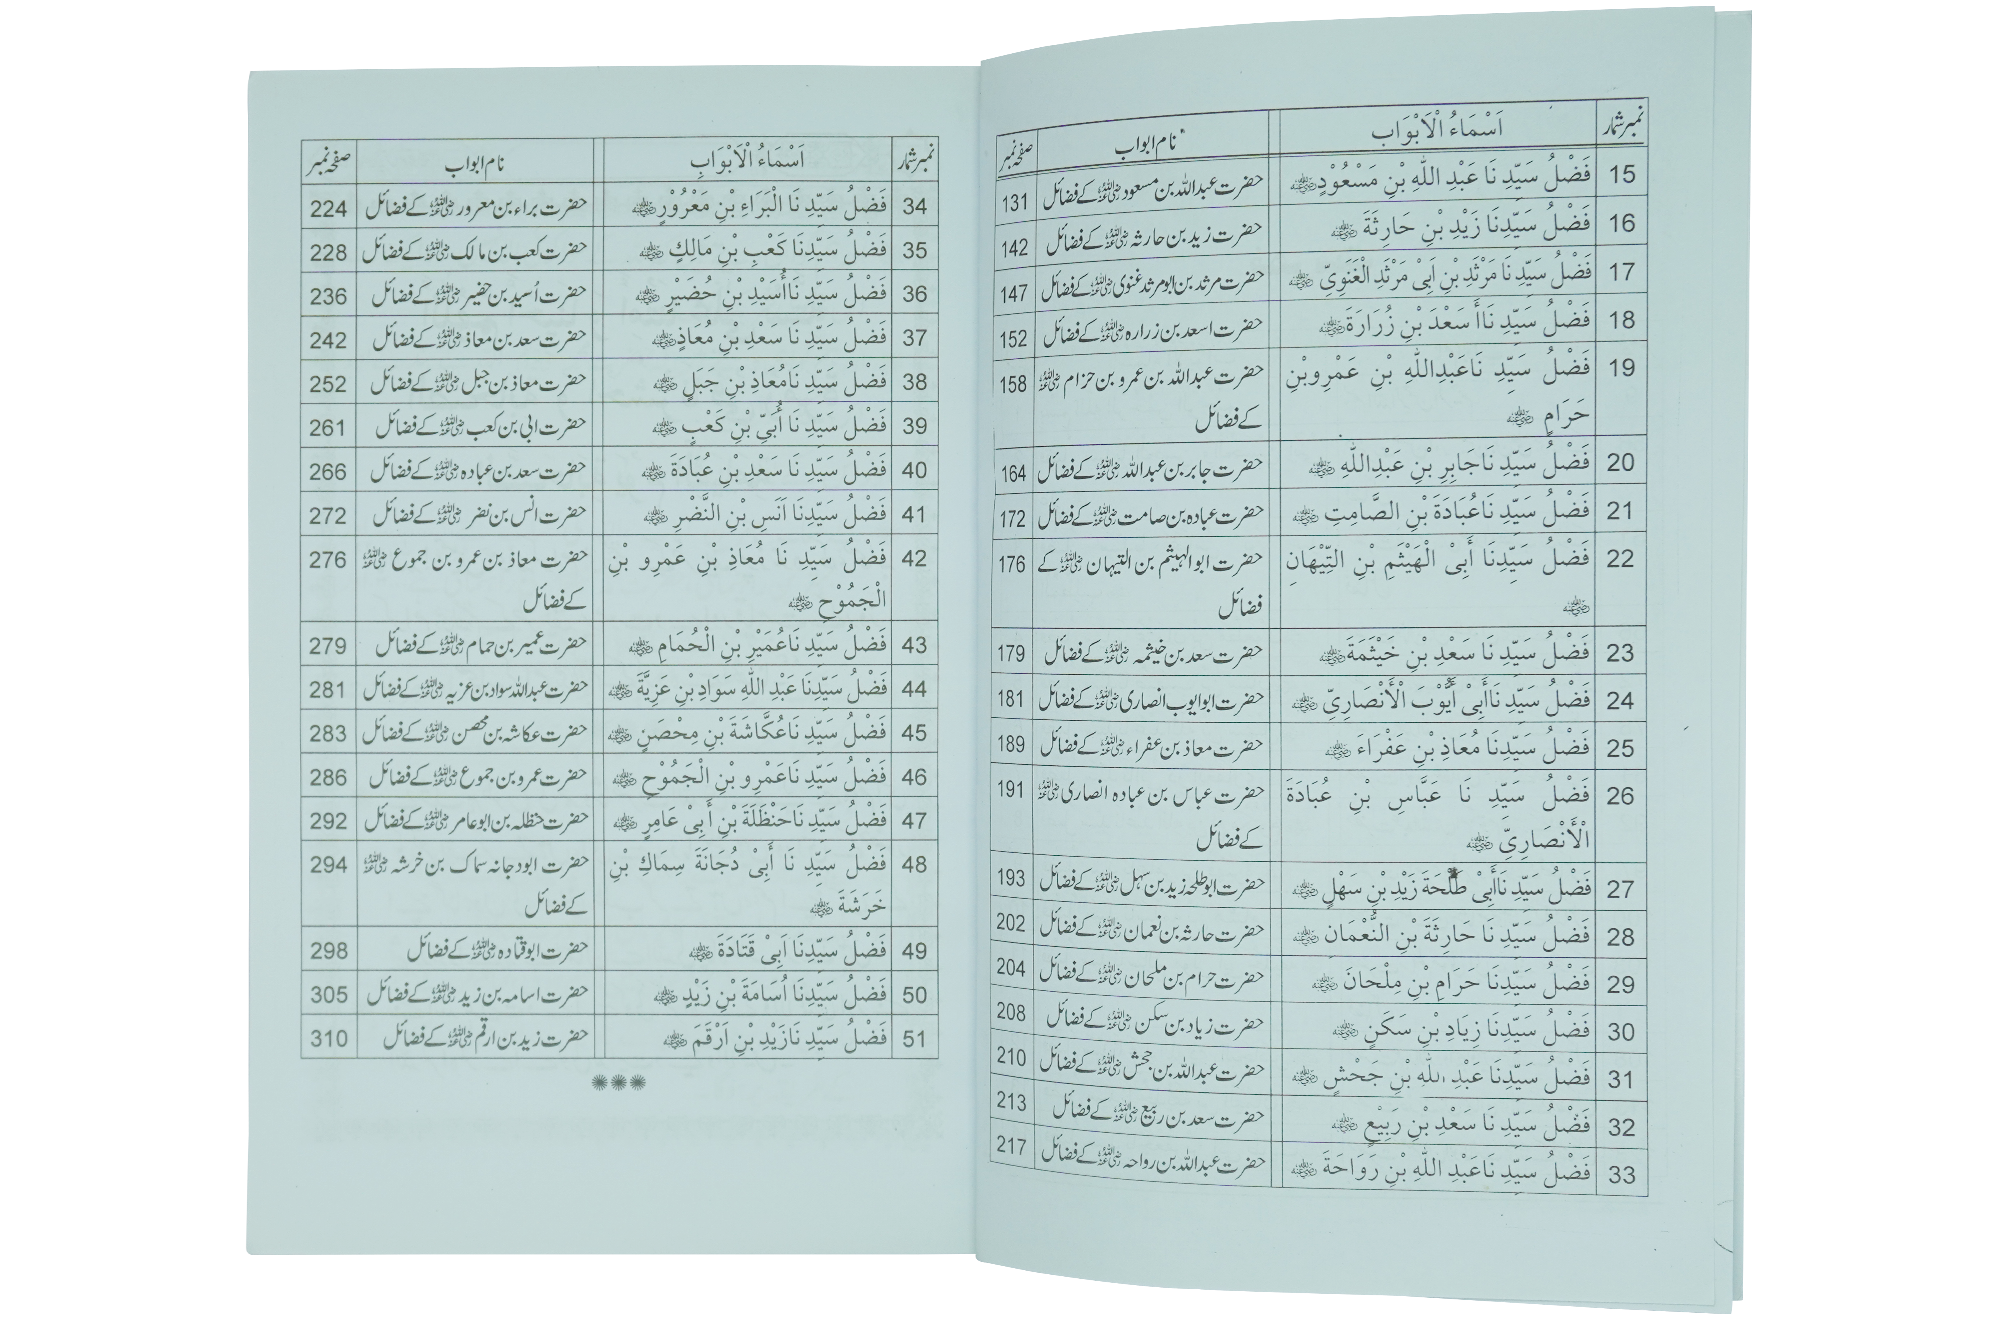 نمبرشمار اَسْمَاءُ الْاَبْوَاب نام ابواب صفحہ نمبر
15 فَضْلُ سَيِّدِ نَا عَبْدِ اللّٰهِ بْنِ مَسْعُوْدٍ ﷛ حضرت عبداللہ بن مسعود ﷛ کے فضائل 131
16 فَضْلُ سَيِّدِنَا زَيْدِ بْنِ حَارِثَةَ ﷛ حضرت زید بن حارثہ ﷛ کے فضائل 142
17 فَضْلُ سَيِّدِ نَا مَرْثَدِ بْنِ اَبِىْ مَرْثَدِ الْغَنَوِىِّ ﷛ حضرت مرثد بن ابومرثد غنوی ﷛ کے فضائل 147
18 فَضْلُ سَيِّدِ نَاأَ سَعْدَ بْنِ زُرَارَةَ ﷛ حضرت اسعد بن زرارہ ﷛ کے فضائل 152
19 فَضْلُ سَيِّدِ نَاعَبْدِاللّٰهِ بْنِ عَمْرِوبْنِ حضرت عبداللہ بن عمرو بن حزام ﷛ 158
حَرَامٍ ﷛ کے فضائل
20 فَضْلُ سَيِّدِ نَاجَابِرِ بْنِ عَبْدِاللّٰهِ ﷛ حضرت جابر بن عبداللہ ﷛ کے فضائل 164
21 فَضْلُ سَيِّدِ نَاعُبَادَةَ بْنِ الصَّامِتِ ﷛ حضرت عبادہ بن صامت ﷛ کے فضائل 172
22 فَضْلُ سَيِّدِنَا أَبِىْ الْهَيْثَمِ بْنِ التِّيْهَانِ حضرت ابوالہیثم بن التیہان ﷛ کے 176
﷛ فضائل
23 فَضْلُ سَيِّدِ نَا سَعْدِ بْنِ خَيْثَمَةَ ﷛ حضرت سعد بن خیثمہ ﷛ کے فضائل 179
24 فَضْلُ سَيِّدِ نَاأَبِىْ أَيُّوْبَ الْأَنْصَارِىِّ ﷛ حضرت ابوایوب انصاری ﷛ کے فضائل 181
25 فَضْلُ سَيِّدِنَا مُعَاذِ بْنِ عَفْرَاءَ ﷛ حضرت معاذ بن عفراء ﷛ کے فضائل 189
26 فَضْلُ سَيِّدِ نَا عَبَّاسِ بْنِ عُبَادَةَ حضرت عباس بن عبادہ انصاری ﷛ 191
الْأَنْصَارِىِّ ﷛ کے فضائل
27 فَضْلُ سَيِّدِ نَاأَبِىْ طَلْحَةَ زَيْدِ بْنِ سَهْلٍ ﷛ حضرت ابوطلحہ زید بن سہل ﷛ کے فضائل 193
28 فَضْلُ سَيِّدِ نَا حَارِثَةَ بْنِ النُّعْمَانِ ﷛ حضرت حارثہ بن نعمان ﷛ کے فضائل 202
29 فَضْلُ سَيِّدِنَا حَرَامِ بْنِ مِلْحَانَ ﷛ حضرت حرام بن ملحان ﷛ کے فضائل 204
30 فَضْلُ سَيِّدِنَا زِيَادِ بْنِ سَكَنٍ ﷛ حضرت زیاد بن سکن ﷛ کے فضائل 208
31 فَضْلُ سَيِّدِنَا عَبْدِ اللّٰهِ بْنِ جَحْشٍ ﷛ حضرت عبداللہ بن جحش ﷛ کے فضائل 210
32 فَضْلُ سَيِّدِ نَا سَعْدِ بْنِ رَبِيْعٍ ﷛ حضرت سعد بن ربیع ﷛ کے فضائل 213
33 فَضْلُ سَيِّدِ نَاعَبْدِ اللّٰهِ بْنِ رَوَاحَةَ ﷛ حضرت عبداللہ بن رواحہ ﷛ کے فضائل 217
نمبرشمار اَسْمَاءُ الْاَبْوَابِ نام ابواب صفحہ نمبر
34 فَضْلُ سَيِّدِ نَا الْبَرَاءِ بْنِ مَعْرُوْرٍ ﷛ حضرت براء بن معرور ﷛ کے فضائل 224
35 فَضْلُ سَيِّدِنَا كَعْبِ بْنِ مَالِكٍ ﷛ حضرت کعب بن مالک ﷛ کے فضائل 228
36 فَضْلُ سَيِّدِ نَاأُسَيْدِ بْنِ حُضَيْرٍ ﷛ حضرت اُسید بن حضیر ﷛ کے فضائل 236
37 فَضْلُ سَيِّدِ نَا سَعْدِ بْنِ مُعَاذٍ ﷛ حضرت سعد بن معاذ ﷛ کے فضائل 242
38 فَضْلُ سَيِّدِ نَامُعَاذِ بْنِ جَبَلٍ ﷛ حضرت معاذ بن جبل ﷛ کے فضائل 252
39 فَضْلُ سَيِّدِ نَا أُبَىِّ بْنِ كَعْبٍ ﷛ حضرت ابی بن کعب ﷛ کے فضائل 261
40 فَضْلُ سَيِّدِ نَا سَعْدِ بْنِ عُبَادَةَ ﷛ حضرت سعد بن عبادہ ﷛ کے فضائل 266
41 فَضْلُ سَيِّدِنَا اَنَسِ بْنِ النَّضْرِ ﷛ حضرت انس بن نضر ﷛ کے فضائل 272
42 فَضْلُ سَيِّدِ نَا مُعَاذِ بْنِ عَمْرِو بْنِ حضرت معاذ بن عمرو بن جموع ﷛ 276
الْجَمُوْحِ ﷛ کے فضائل
43 فَضْلُ سَيِّدِ نَاعُمَيْرِ بْنِ الْحُمَامِ ﷛ حضرت عمیر بن حمام ﷛ کے فضائل 279
44 فَضْلُ سَيِّدِنَا عَبْدِ اللّٰهِ سَوَادِبْنِ عَزِيَّةَ ﷛ حضرت عبداللہ سواد بن عزیہ ﷛ کے فضائل 281
45 فَضْلُ سَيِّدِ نَاعُكَّاشَةَ بْنِ مِحْصَنٍ ﷛ حضرت عکاشہ بن محصن ﷛ کے فضائل 283
46 فَضْلُ سَيِّدِ نَاعَمْرِو بْنِ الْجَمُوْحِ ﷛ حضرت عمرو بن جموع ﷛ کے فضائل 286
47 فَضْلُ سَيِّدِ نَاحَنْظَلَةَ بْنِ أَبِىْ عَامِرٍ ﷛ حضرت حنظلہ بن ابوعامر ﷛ کے فضائل 292
48 فَضْلُ سَيِّدِ نَا أَبِىْ دُجَانَةَ سِمَاكِ بْنِ حضرت ابودجانہ سماک بن خرشہ ﷛ 294
خَرَشَةَ ﷛ کے فضائل
49 فَضْلُ سَيِّدِنَا اَبِىْ قَتَادَةَ ﷛ حضرت ابوقتادہ ﷛ کے فضائل 298
50 فَضْلُ سَيِّدِنَا اُسَامَةَ بْنِ زَيْدٍ ﷛ حضرت اسامہ بن زید ﷛ کے فضائل 305
51 فَضْلُ سَيِّدِ نَازَيْدِ بْنِ اَرْقَمَ ﷛ حضرت زید بن ارقم ﷛ کے فضائل 310